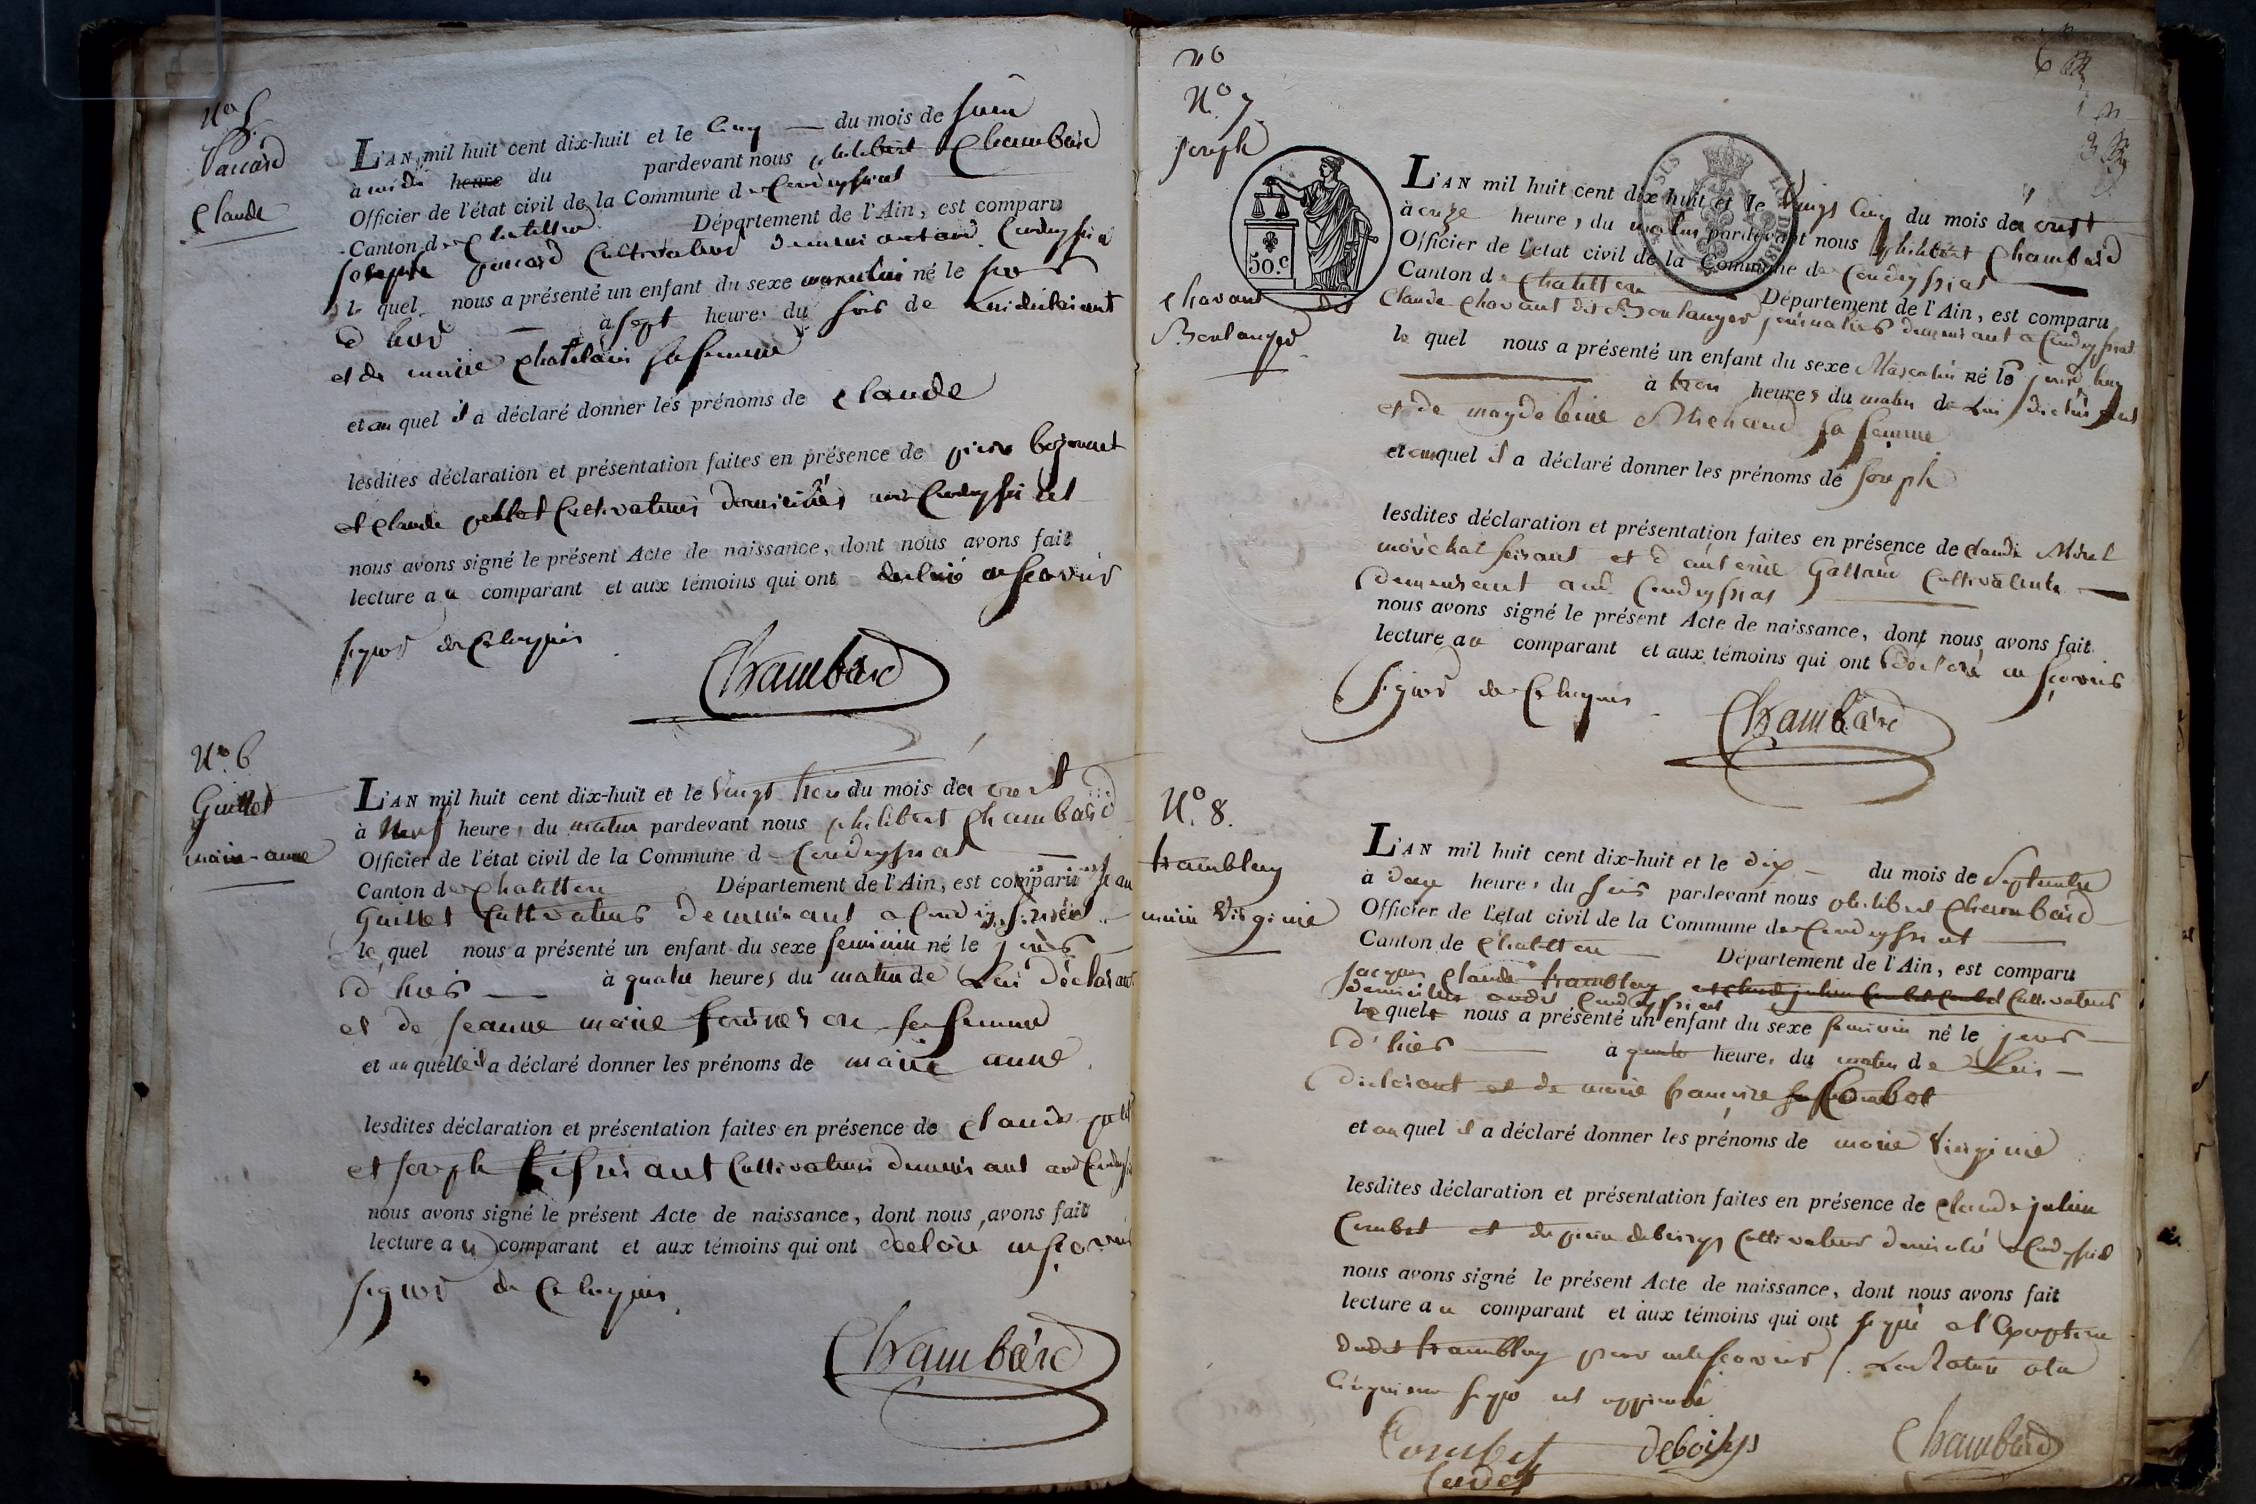 No 5.
Paccard
Claude
L'AN mil huit cent dix-huit et le cinq du mois de juin
à midi heure du pardevant nous philibert Chambard
Officier de l'état civil de la Commune de Condeyssiat
Canton de Chatillon Département de l'Ain, est comparu
joseph paccard Cultivateur demeurant au Condeyssiat
le quel nous a présenté un enfant du sexe masculin né le jour
d'hier à sept heures du soir de lui déclarant
et de marie chatelain sa femme
et au quel il a déclaré donner les prénoms de Claude
lesdites déclaration et présentation faites en présence de pierre
et Claude Cultivateurs domiciliés au Condeyssiat
nous avons signé le présent Acte de naissance, dont nous avons fait
lecture au comparant et aux témoins qui ont déclaré ne scavoir
signer de ce requis
Chambard
No. 6
Guillet
marie-anne
L'AN mil huit cent dix-huit et le Vingt trois du mois de aoust
à Neuf heures du matin pardevant nous philibert Chambard
Officier de l'état civil de la Commune de Condeyssiat
Canton de Chatillon Département de l'Ain, est comparu jean
Guillet Cultivateur demeurant a Condeyssiat
le quel nous a présenté un enfant du sexe feminin né le jour
d'hier à quatre heures du matin de Lui déclarant
et de jeanne marie sa femme
et au quel il a déclaré donner les prénoms de marie anne
lesdites déclaration et présentation faites en présence de Claude
et joseph Cultivateurs demeurant au
nous avons signé le présent Acte de naissance, dont nous avons fait
lecture au comparant et aux témoins qui ont déclaré ne scavoir
signer de ce requis
Chambard
No
N.o 7
joseph
chavant dit
Boulanger
50.c
L'AN mil huit cent dix-huit et le Vingt Cinq du mois de aoust
à onze heures du matin pardevant nous philibert Chambard
Officier de l'état civil de la Commune de Condeyssiat
Canton de Chatillon Département de l'Ain, est comparu
Claude Chavant dit Boulanger journalier demeurant a Condeyssiat
le quel nous a présenté un enfant du sexe Masculin né le jour d'huy
à trois heures du matin de Lui déclarant
et de magdeleine Michaud sa femme
et au quel il a déclaré donner les prénoms de joseph
lesdites déclaration et présentation faites en présence de Claude Morel
maréchal ferrant et d'antoine Cultivateur
demeurant au Condeyssiat
nous avons signé le présent Acte de naissance, dont nous avons fait
lecture au comparant et aux témoins qui ont déclaré ne scavoir
signer de ce requis
Chambard
N.o 8.
trambley
marie Virginie
L'AN mil huit cent dix-huit et le dix du mois de Septembre
à heure, du soir pardevant nous philibert Chambard
Officier de l'état civil de la Commune de Condeyssiat
Canton de Chatillon Département de l'Ain, est comparu
jacques Claude trambley Cultivateur
domicilié audit Condeyssiat
le quel nous a présenté un enfant du sexe feminin né le jour
d'hier à quatre heures du matin de Lui
déclarant et de marie françoise Combet
et au quel il a déclaré donner les prénoms de marie Virginie
lesdites déclaration et présentation faites en présence de Claude julien
Combet et de pierre deboisys Cultivateur domicilié a Condeyssiat
nous avons signé le présent Acte de naissance, dont nous avons fait
lecture au comparant et aux témoins qui ont signé a l'exception
dudit trambley pour ne scavoir. La rature a la
Cinquieme ligne est approuvé
Combet
Cadet
deboisys
Chambard